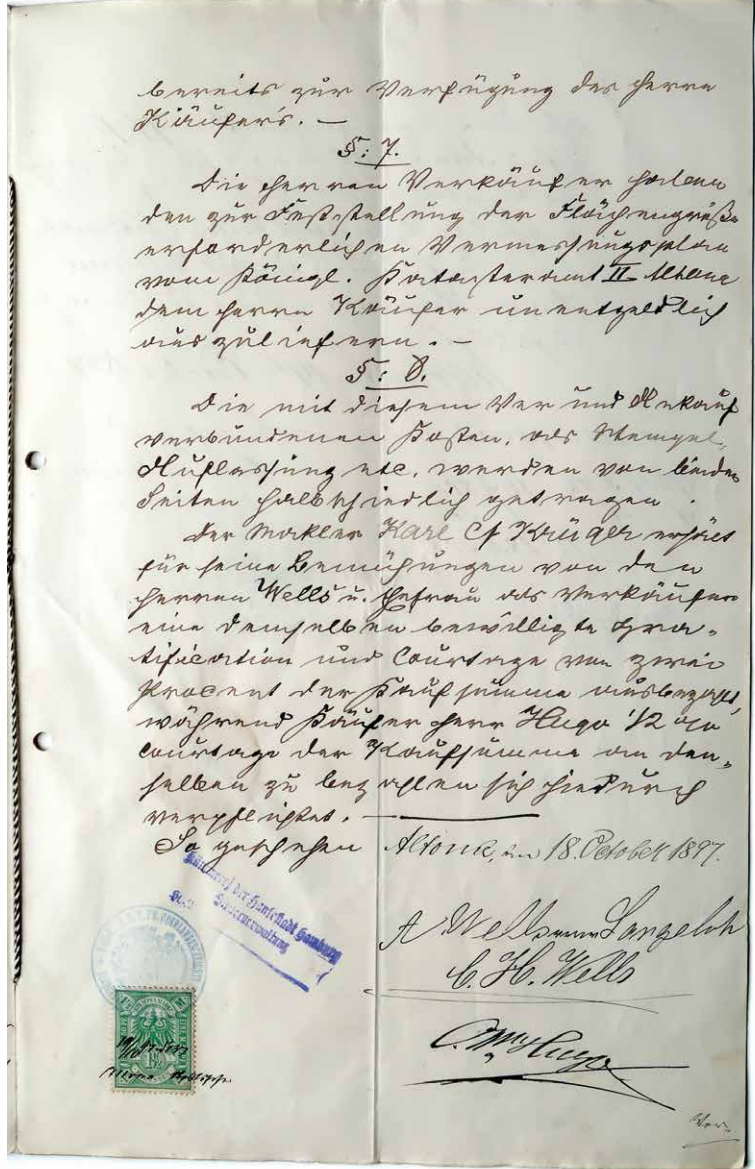 bereits zur Verfügung des Herrn
Käufer's. —
§: 7.
Die Herren Verkäufer haben
den zur Feststellung der Flächengröße
erforderlichen Vermessungsplan
vom Königl. Katasteramt II Altona
dem Herrn Käufer unentgeldlich
auszuliefern. —
§: 8.
Die mit diesem Ver und Ankauf
verbundenen Kosten, als Stempel,
Auflassung etc. werden von beiden
Seiten halbschiedlich getragen.
Der Makler Karl Krüger erhält
für seine Bemühungen von den
Herren Wells u. Ehefrau als Verkäufer
eine demselben bewilligte Gra-
tification und Courtage von zwei
Procent der Kaufsumme ausbezahlt,
während Käufer Herr Hugo 1/2 %
Courtage der Kaufsumme an den-
selben zu bezahlen sich hiedurch
verpflichtet. —
So geschehen Altona, den 18. October 1897.
der Hansestadt Hamburg
Steuerverwaltung
A Wells Langeloh
C. H. Wells
Hugo